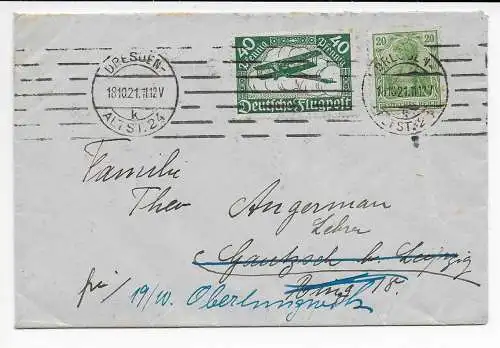 DRESDEN-
18.10.21.11-12V
k
ALTST. 24
40 Pfennig Pfennig 40
Deutsche Flugpost
20 20
18.10.21.11-12V
Familie
Theo Angerman
Lehrer
Gautzsch b. Leipzig
19/10. Oberlungwitz